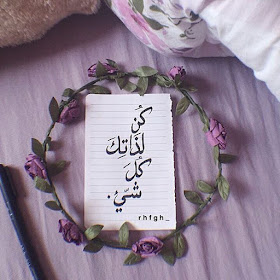 كُن
لذَاتِكَ
كُلَّ
شيْء.
rhfgh_